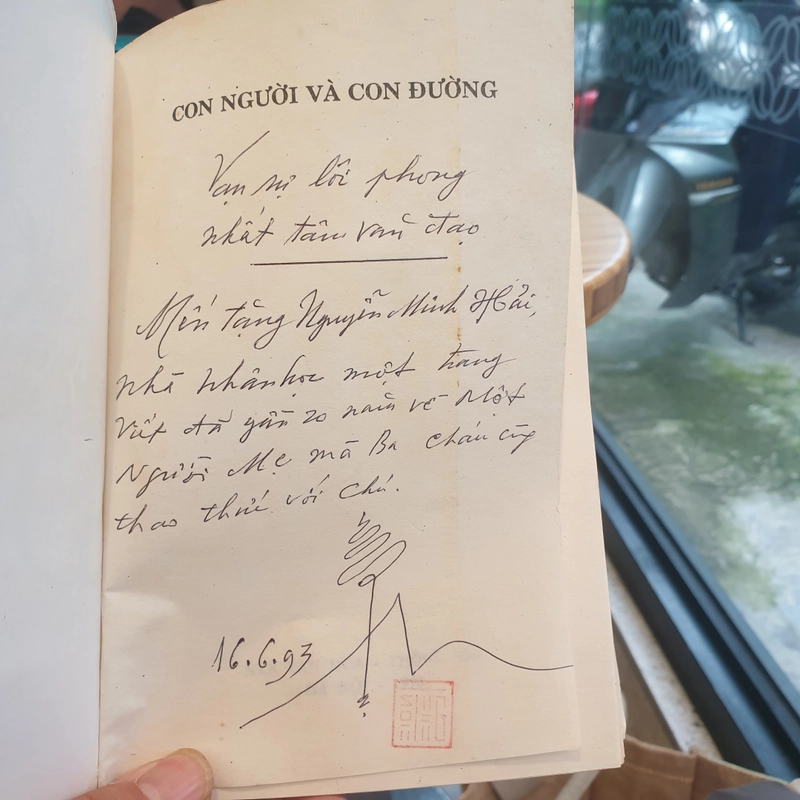 CON NGƯỜI VÀ CON ĐƯỜNG
Vạn sự lôi phong
nhất tâm vấn đạo
Mến tặng Nguyễn Minh Hải,
nhà nhân học một trang
viết đã gần 20 năm về Một
Người Mẹ mà Ba cháu cũng
thao thức với chú.
16.6.93